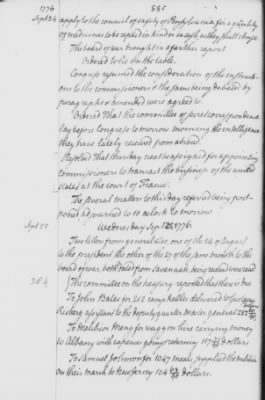 1776
885
Sept 24
apply to the council of safety of Pensylvania for a quantity
of medicines to be repaid in kind or in cash as they shall chuse.
The board of war brought in a farther report
Ordered to lie on the table.
Congress resumed the consideration of the instructi
ons to the commissioners & the same being debated by
paragraphs & amended were agreed to.
Ordered That the committee of secret correspondence
lay before congress to morrow morning the intelligence
they have lately received from abroad.
Resolved That thursday next be assigned for appointing
commissioners to transact the business of the united
states at the court of France.
The several matters to this day referred being post-
poned adjourned to 10 o'clock to morrow
Wednesday Sept 25, 1776.
Sept 25
Two letters from general Lee, one of the 24 of August
to the president the other of the 27 of the same month to the
board of war both dated from Savannah being recd were read
384
The committee on the treasury reported that there is due
To John Bales for 262 camp kettles delivered to
assistant to the deputy quarter master general 287 dollars
To Hezekiah Mang for waggon hire carrying money
to Albany with expences going & returning 117 dollars
To Samuel Johnson for 1047 meals supplied the militia
on their march to new Jersey 104 dollars.